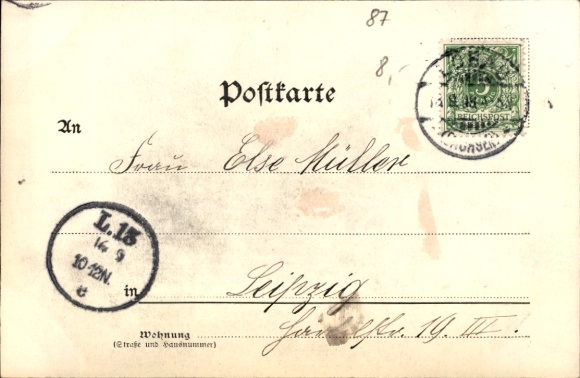 87
8,-
Postkarte
LÖBAU
5
REICHSPOST
(SACHSEN)
An
Frau Else Müller
L.13
14 9
10-12N.
in
Leipzig
19. III.
Wohnung
(Straße und Hausnummer)